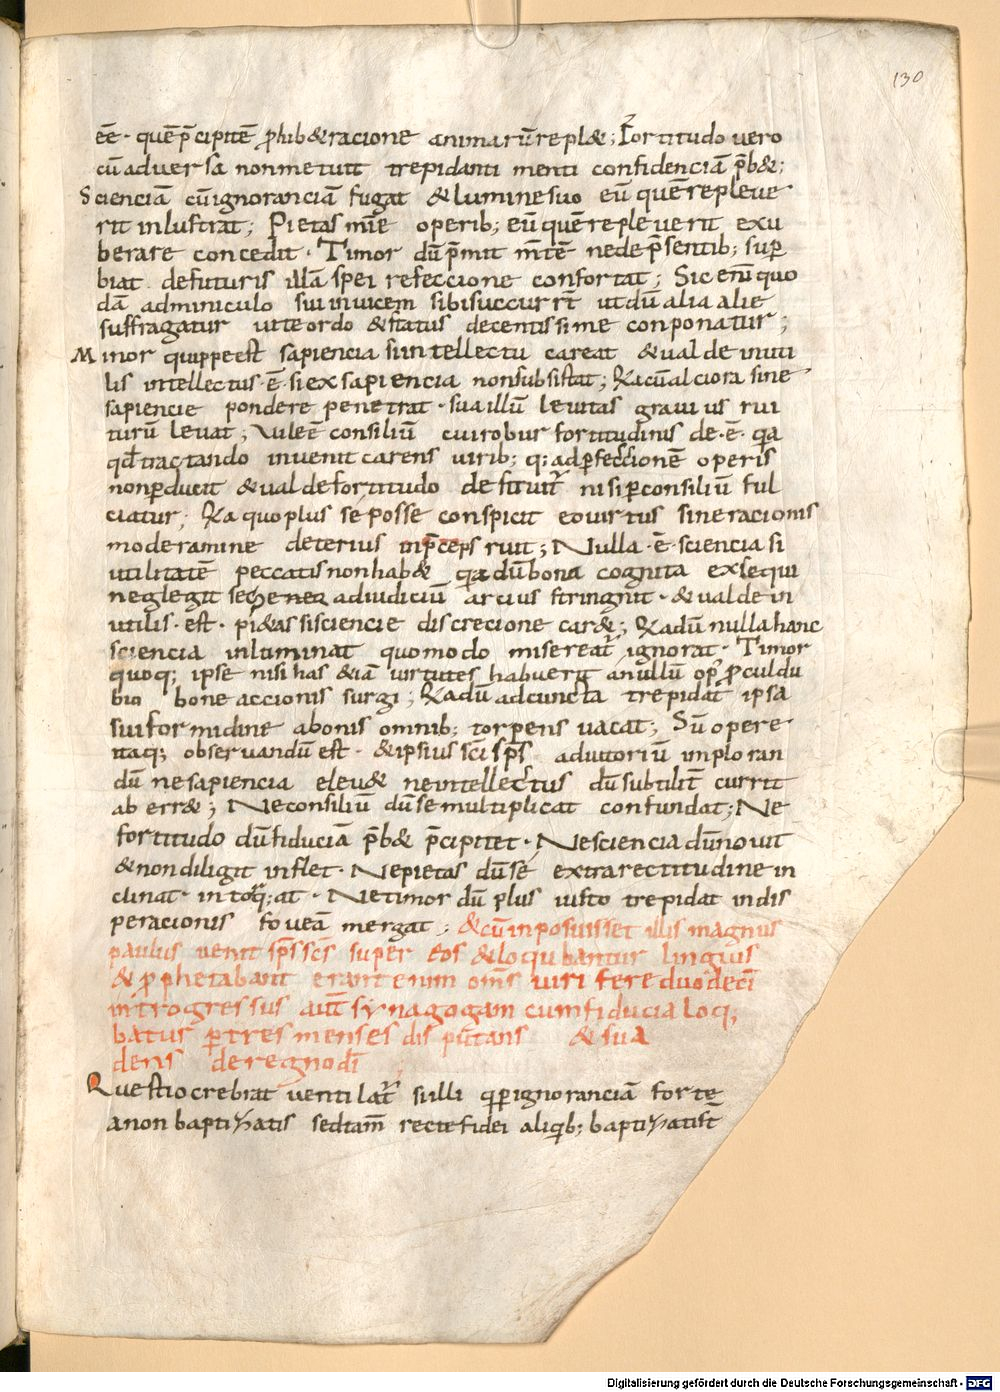 130
eē· quē p̄cipitē ꝓhib& racione animarū repl&; Fortitudo vero
cū adversa non metuit trepidanti menti confidenciā p̄b&;
Sciencia cū ignoranciā fugat & lumine suo eū quē repleve
rit inlustrat; Pietas m̄ie operib; eū quē repleverit exu
berare concedit· Timor dū p̄mit m̄tē ne de p̄sentib; suꝑ
biat de futuris illā spei refeccione confortat; Sic enī quo
dā adminiculo sui invicem sibi succurrt̄ ut dū alia alie
suffragatur vite ordo & status decentissime conponatur;
Minor quippe est sapiencia si intellectu careat & valde inuti
lis intellectus·ē· si ex sapiencia non subsistat; Q̇a cū alciora sine
sapiencie pondere penetrat· sua illū levitas gravius rui
turū levat; Vile ē consiliū cui robur fortitudinis de·ē· q̇a
qd̄ tractando invenit carens virib; q; ad ꝑfeccionē operis
non ꝑducit & valde fortitudo destituit᷑ nisi ꝑ consiliū ful
ciatur; Q̇a quo plus se posse conspicit eo virtus sine racionis
moderamine deterius in p̄ceps ruit; Nulla·ē·sciencia si
utilitatē peccatis non hab& q̇a dū bona cognita exsequi
neglegit se ad iudiciū arcius stringit· & valde in
utilis·est· pi&as si sciencie discrecione car&; Q̇a dū nulla hanc
sciencia inluminat quomodo misereat᷑ ignorat· Timor
quoq; ipse nisi has &iā virtutes habuerit ad nullū op᷑ ꝓculdu
bio bone accionis surgi; Q̇a dū ad cuncta trepidat᷑ ipsa
sui formidine a bonis omnib; torpens vacat; Sū opere
itaq; observandū est· & ipsius sc̄i sp̄s adiutoriū imploran
dū ne sapiencia elev& ne intellectus dū subtilit᷑ currit
aberr&; Ne consiliū dū se multiplicat confundat; Ne
fortitudo dū fiduciā p̄b& p̄cipitet· Ne sciencia dū novit
& non diligit inflet· Ne pietas dū se extra rectitudine in
clinat· intorq;at· Ne timor dū plus iusto trepidat in dis
peracionis foveā mergat; & cū inposuisset illis magnus
paulus venit sp̄s sc̄s super eos & loquebantur linguis
& ꝓphetabant erant enim om̄s viri fere duodeci
introgressus aut̄ synagogam cum fiducia loq;
batur ꝑ tres menses disputans & sua
dens de regno dī
Questio crebrat ventilat᷑ si illi q̇ ꝑ ignoranciā forte
a non baptizatis sed tam̄ recte fidei aliqib; baptizatist̄
Digitalisierung gefördert durch die Deutsche Forschungsgemeinschaft - DFG